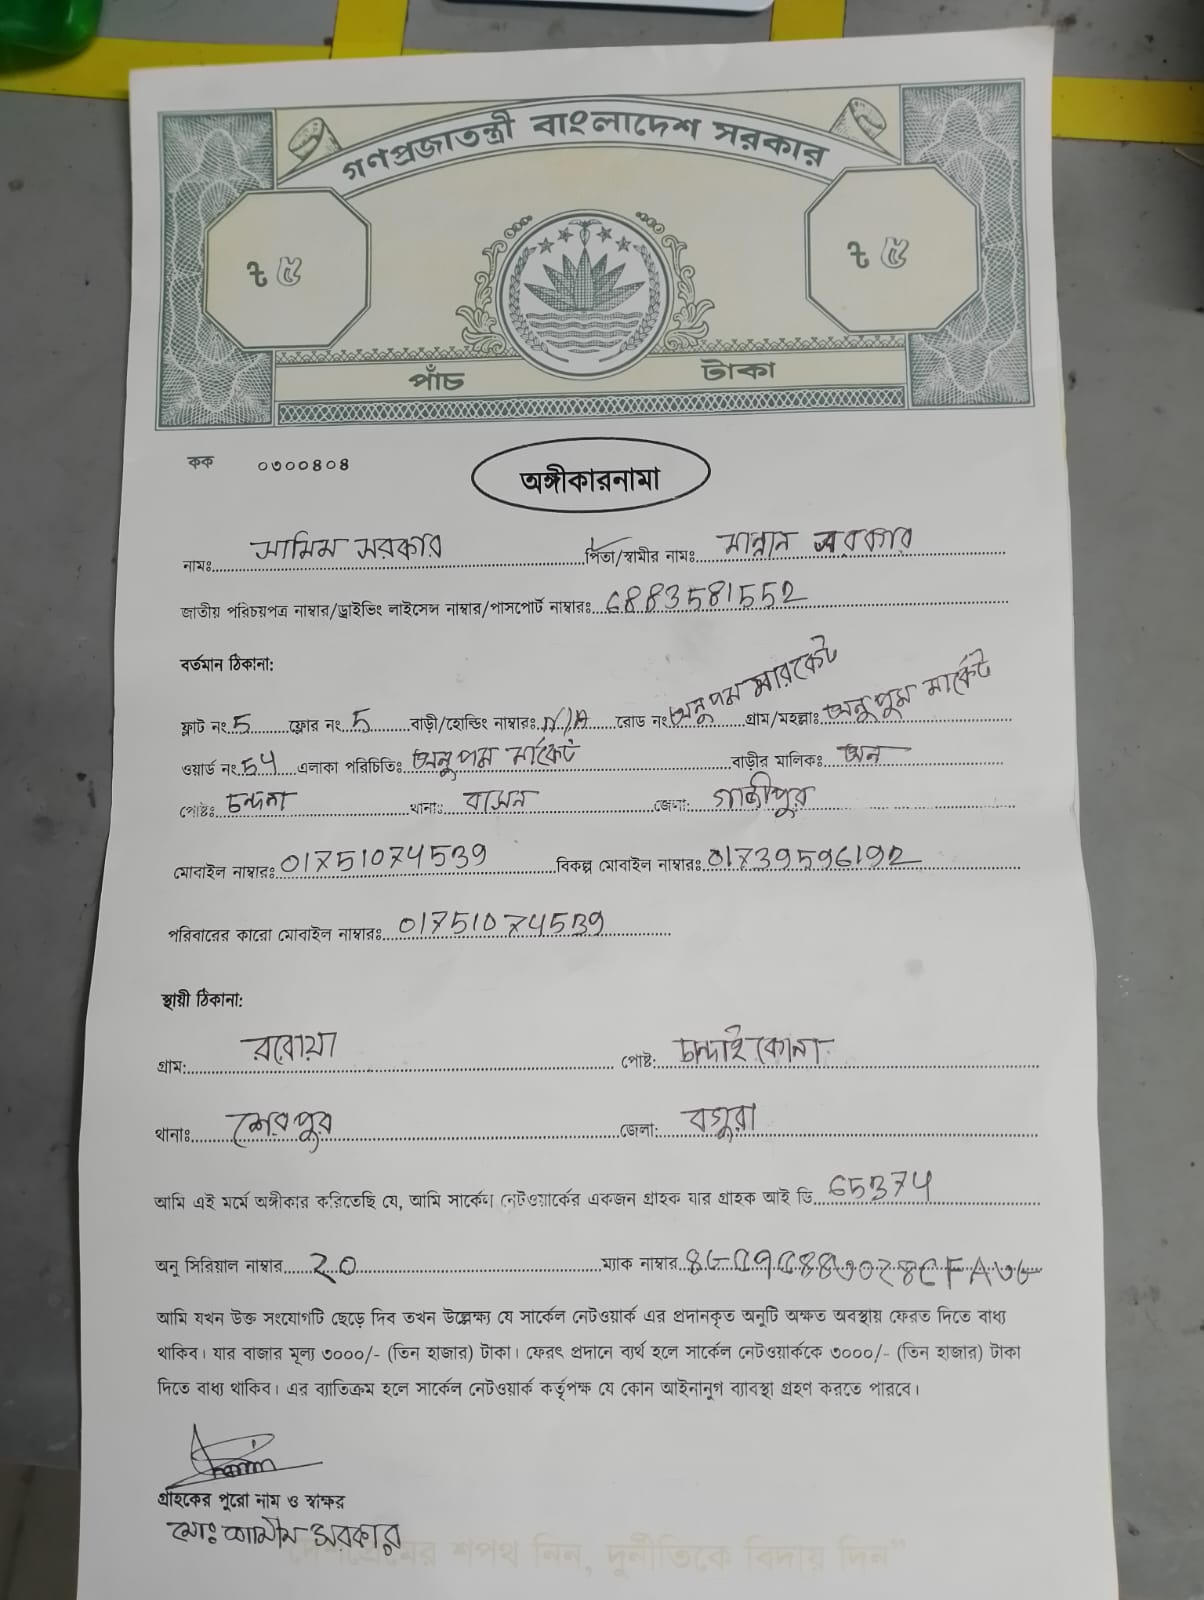 গণপ্রজাতন্ত্রী বাংলাদেশ সরকার
৳ ৫
৳ ৫
পাঁচ টাকা
কক ০৩০০৪০৪
অঙ্গীকারনামা
নামঃ সামিম সরকার পিতা/স্বামীর নামঃ মান্নান সরকার
জাতীয় পরিচয়পত্র নাম্বার/ড্রাইভিং লাইসেন্স নাম্বার/পাসপোর্ট নাম্বারঃ 6883581552
বর্তমান ঠিকানা:
ফ্লাট নং 5 ফ্লোর নং 5 বাড়ী/হোল্ডিং নাম্বারঃ N/A রোড নং অনুপম মারকেট গ্রাম/মহল্লাঃ অনুপুম মার্কেট
ওয়ার্ড নং 54 এলাকা পরিচিতিঃ অনুপম মার্কেট বাড়ীর মালিকঃ অন
পোষ্টঃ চন্দনা থানাঃ বাসন জেলা: গাজীপুর
মোবাইল নাম্বারঃ 01751074539 বিকল্প মোবাইল নাম্বারঃ 01739596192
পরিবারের কারো মোবাইল নাম্বারঃ 01751074539
স্থায়ী ঠিকানা:
গ্রাম: বরোয়া পোষ্ট: চান্দাইকোনা
থানাঃ শেরপুর জেলা: বগুরা
আমি এই মর্মে অঙ্গীকার করিতেছি যে, আমি সার্কেল নেটওয়ার্কের একজন গ্রাহক যার গ্রাহক আই ডি 65374
অনু সিরিয়াল নাম্বার 20 ম্যাক নাম্বার
আমি যখন উক্ত সংযোগটি ছেড়ে দিব তখন উল্লেক্ষ্য যে সার্কেল নেটওয়ার্ক এর প্রদানকৃত অনুটি অক্ষত অবস্থায় ফেরত দিতে বাধ্য
থাকিব। যার বাজার মূল্য ৩০০০/- (তিন হাজার) টাকা। ফেরৎ প্রদানে ব্যর্থ হলে সার্কেল নেটওয়ার্ককে ৩০০০/- (তিন হাজার) টাকা
দিতে বাধ্য থাকিব। এর ব্যাতিক্রম হলে সার্কেল নেটওয়ার্ক কর্তৃপক্ষ যে কোন আইনানুগ ব্যাবস্থা গ্রহণ করতে পারবে।
গ্রাহকের পুরো নাম ও স্বাক্ষর
মোঃ শামীম সরকার
"দেশপ্রেমের শপথ নিন, দুর্নীতিকে বিদায় দিন"